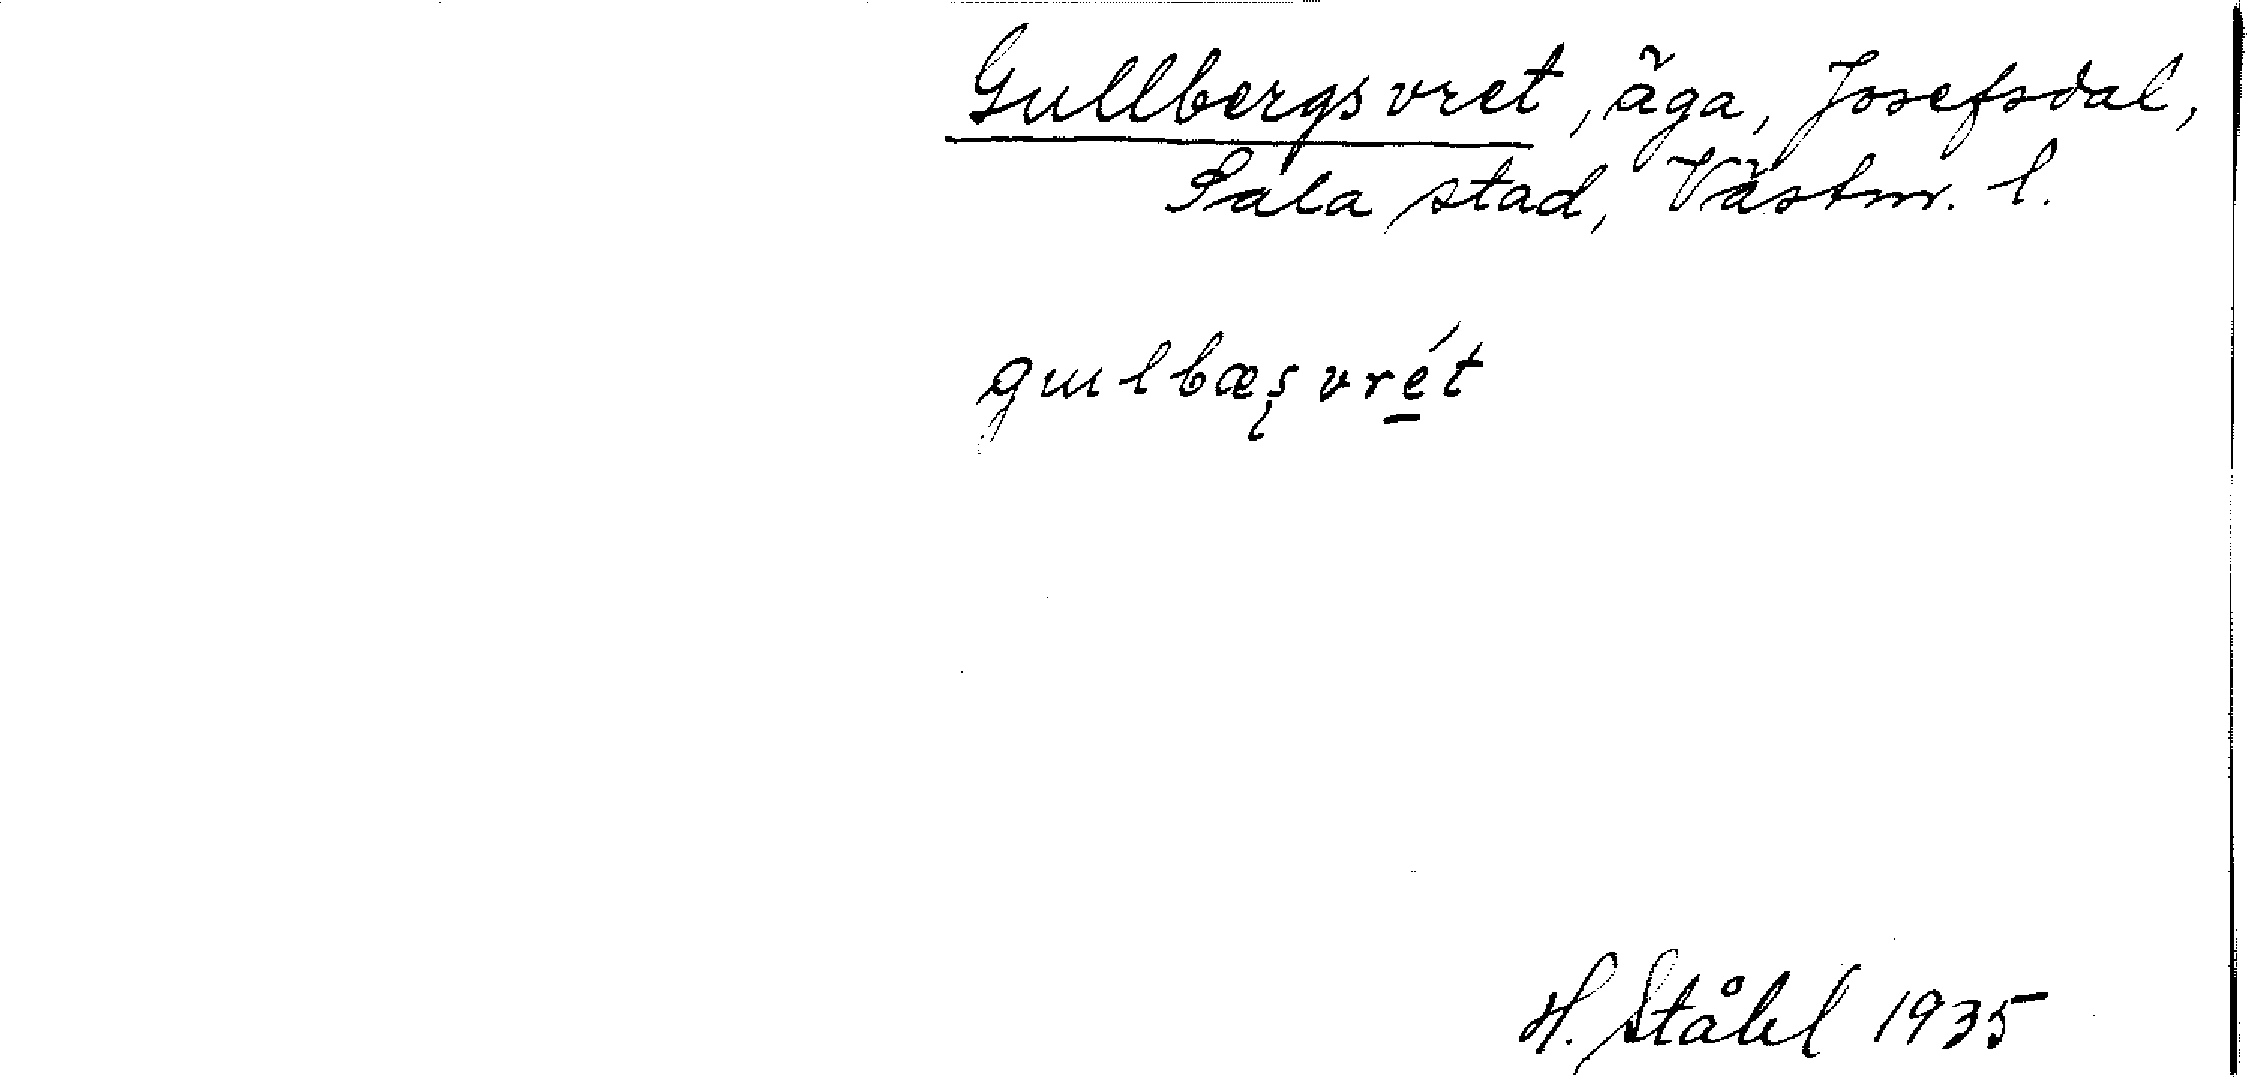 Gullbergsvret, äga, Josefsdal,
Sala stad, Västm. l.
gɯlbæʂvré̱t
H. Ståhl 1935